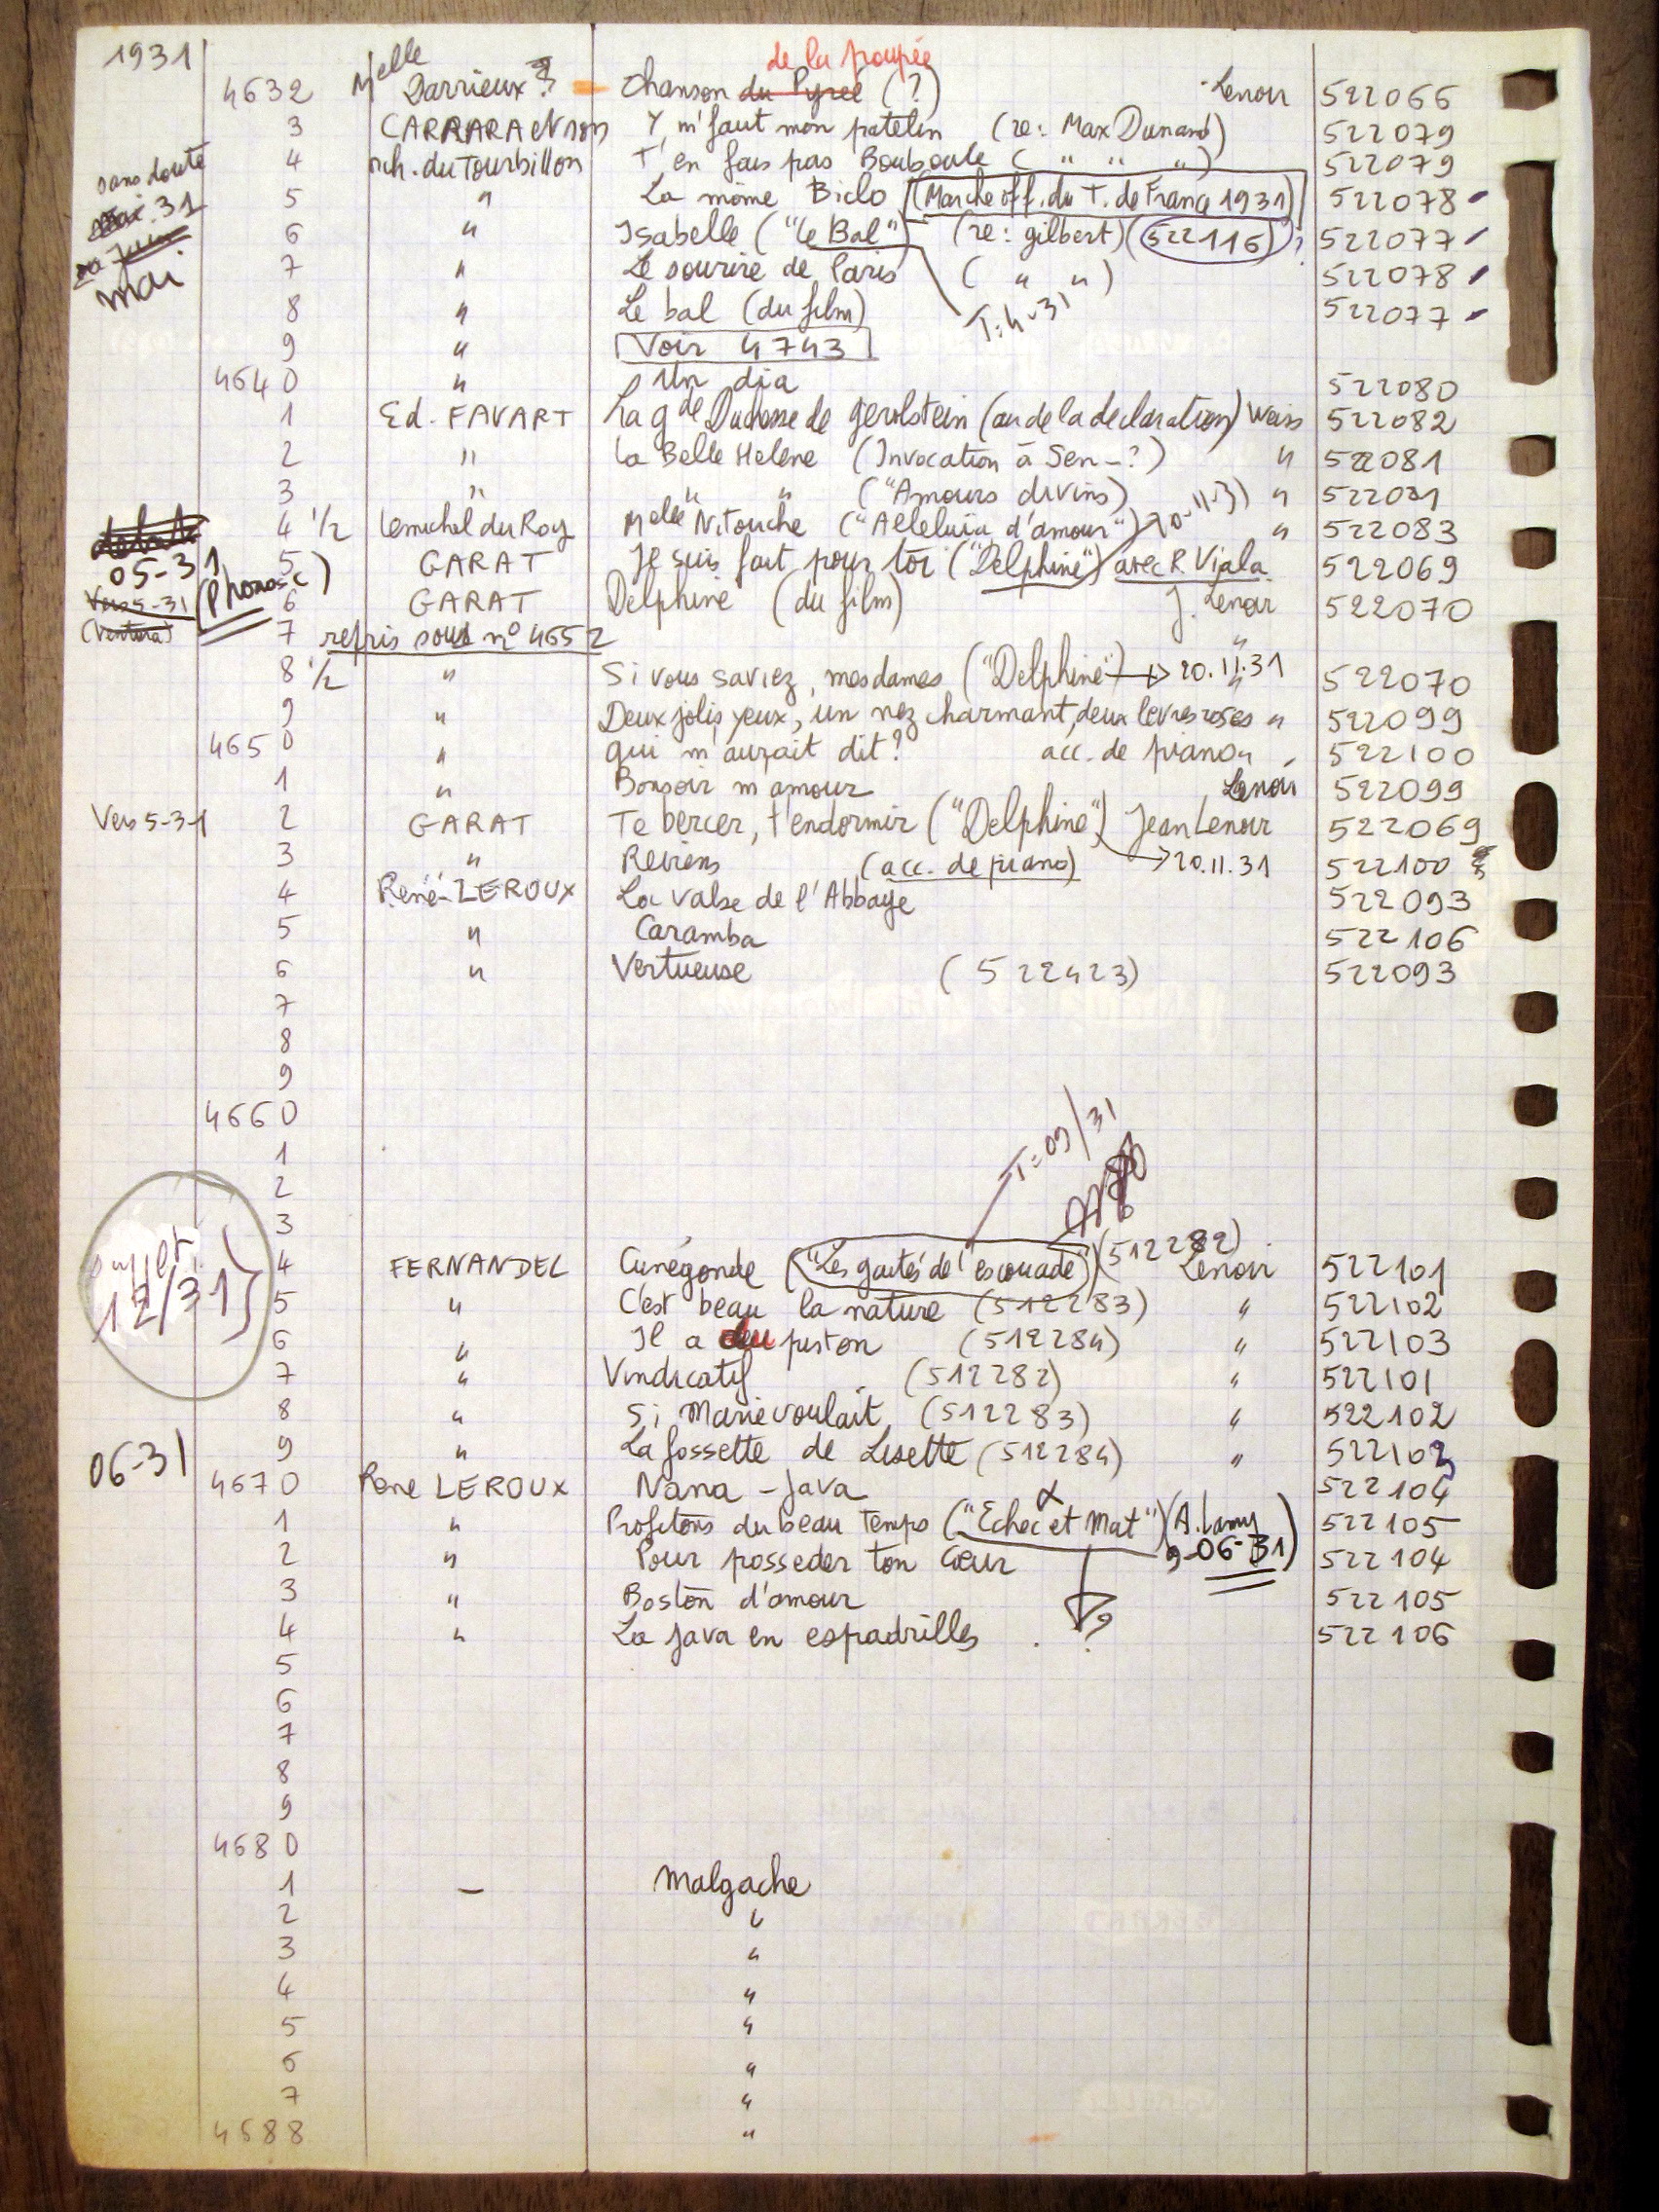 1931
de la poupée
4632 Melle Darrieux ? Chanson du Pyrée (?) Lenoir 522066
3 CARRARA et son Y m'faut mon patelin (re: Max Dunand) 522079
sans doute 4 orch. du Tourbillon T'en fais pas Bouboule ( " " " ) 522079
mai 31 5 " La môme Biclo (Marche off. du T. de France 1931) 522078
ou Juin 6 " Isabelle ("Le Bal") (re: gilbert) (522116)? 522077
mai 7 " Le sourire de Paris ( " " ) 522078
8 " Le bal (du film) T: 4-31 522077
9 " Voir 4743
4640 " Un dia 522080
1 Ed. FAVART La gde Duchesse de gerolstein (air de la declaration) Weiss 522082
2 " La Belle Helene (Invocation à Ven-?) " 522081
3 " " " ("Amours divins) " 522081
4 1/2 Lemichel du Roy Melle Nitouche ("Alleluia d'amour") 20-11-31 " 522083
05-31 5 GARAT Je suis fait pour toi ("Delphine") avec R. Viala 522069
Vers 5-31 (Phonos c) 6 GARAT Delphine (du film) J. Lenoir 522070
(Ventura) 7 repris sous n° 4652 "
8 1/2 " Si vous saviez, mesdames ("Delphine") → 20.11.31 " 522070
9 " Deux jolis yeux, un nez charmant, deux levres roses " 522099
4650 " qui m'aurait dit? acc. de piano " 522100
1 " Bonsoir m'amour Lenoir 522099
Vers 5-31 2 GARAT Te bercer, t'endormir ("Delphine") Jean Lenoir 522069
3 " Reviens (acc. de piano) → 20.11.31 522100
4 René LEROUX La valse de l'Abbaye 522093
5 " Caramba 522106
6 " Vertueuse (522423) 522093
7
8
9
4660
1
2
3
T=09/31
juillet 4 FERNANDEL Cunégonde ("Les gaités de l'escouade") (512282) Lenoir 522101
12/31 5 " C'est beau la nature (512283) " 522102
6 " Il a du piston (512284) " 522103
7 " Vindicatif (512282) " 522101
8 " Si Marie voulait (512283) " 522102
06-31 9 " La fossette de Lisette (512284) " 522103
4670 René LEROUX Nana-Java 522104
1 " Profitons du beau temps ("Echec et Mat") (A. Lamy 9-06-31) 522105
2 " Pour posseder ton coeur 522104
3 " Boston d'amour 522105
4 " La java en espadrilles . ? 522106
5
6
7
8
9
4680
1 — Malgache
2 "
3 "
4 "
5 "
6 "
7 "
4688 "